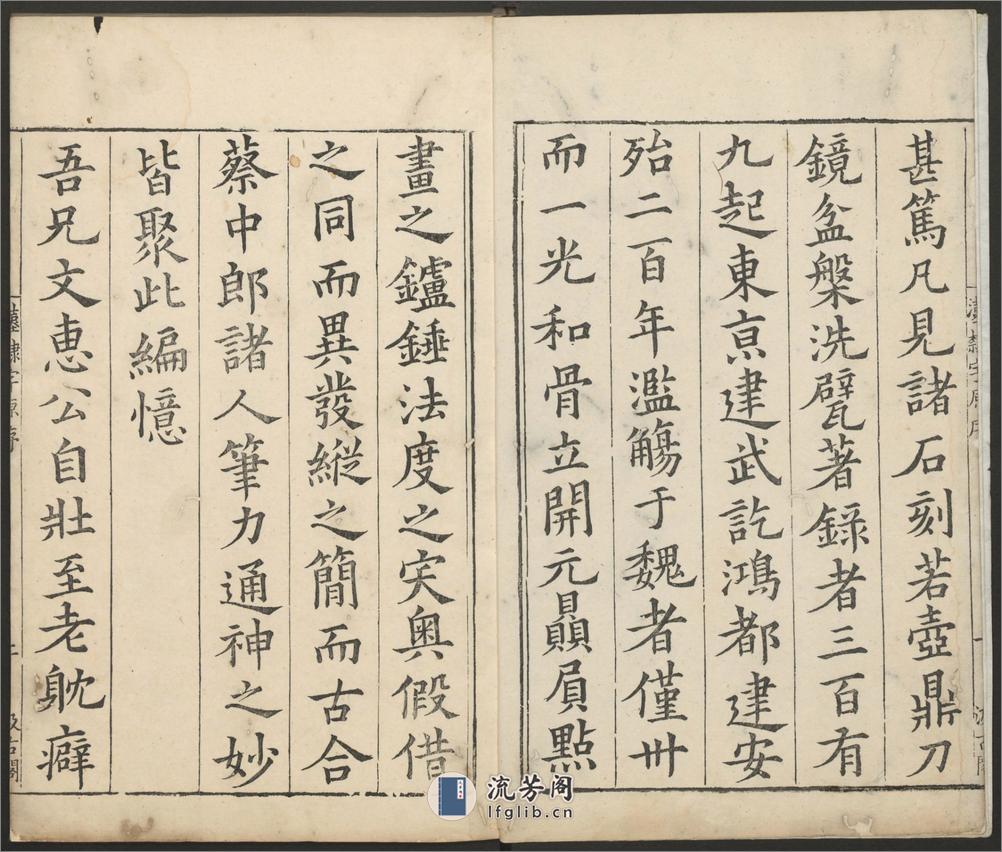 甚篤凡見諸石刻若壺鼎刀
鏡盆槃洗甓著錄者三百有
九起東亰建武訖鴻都建安
殆二百年濫觴于魏者僅卅
而一光和骨立開元贔屓點
畫之鑪錘法度之突奥假借
之同而異發縱之簡而古合
蔡中郎諸人筆力通神之妙
皆聚此編憶
吾兄文惠公自壯至老躭癖
流芳阁
lfglib.cn